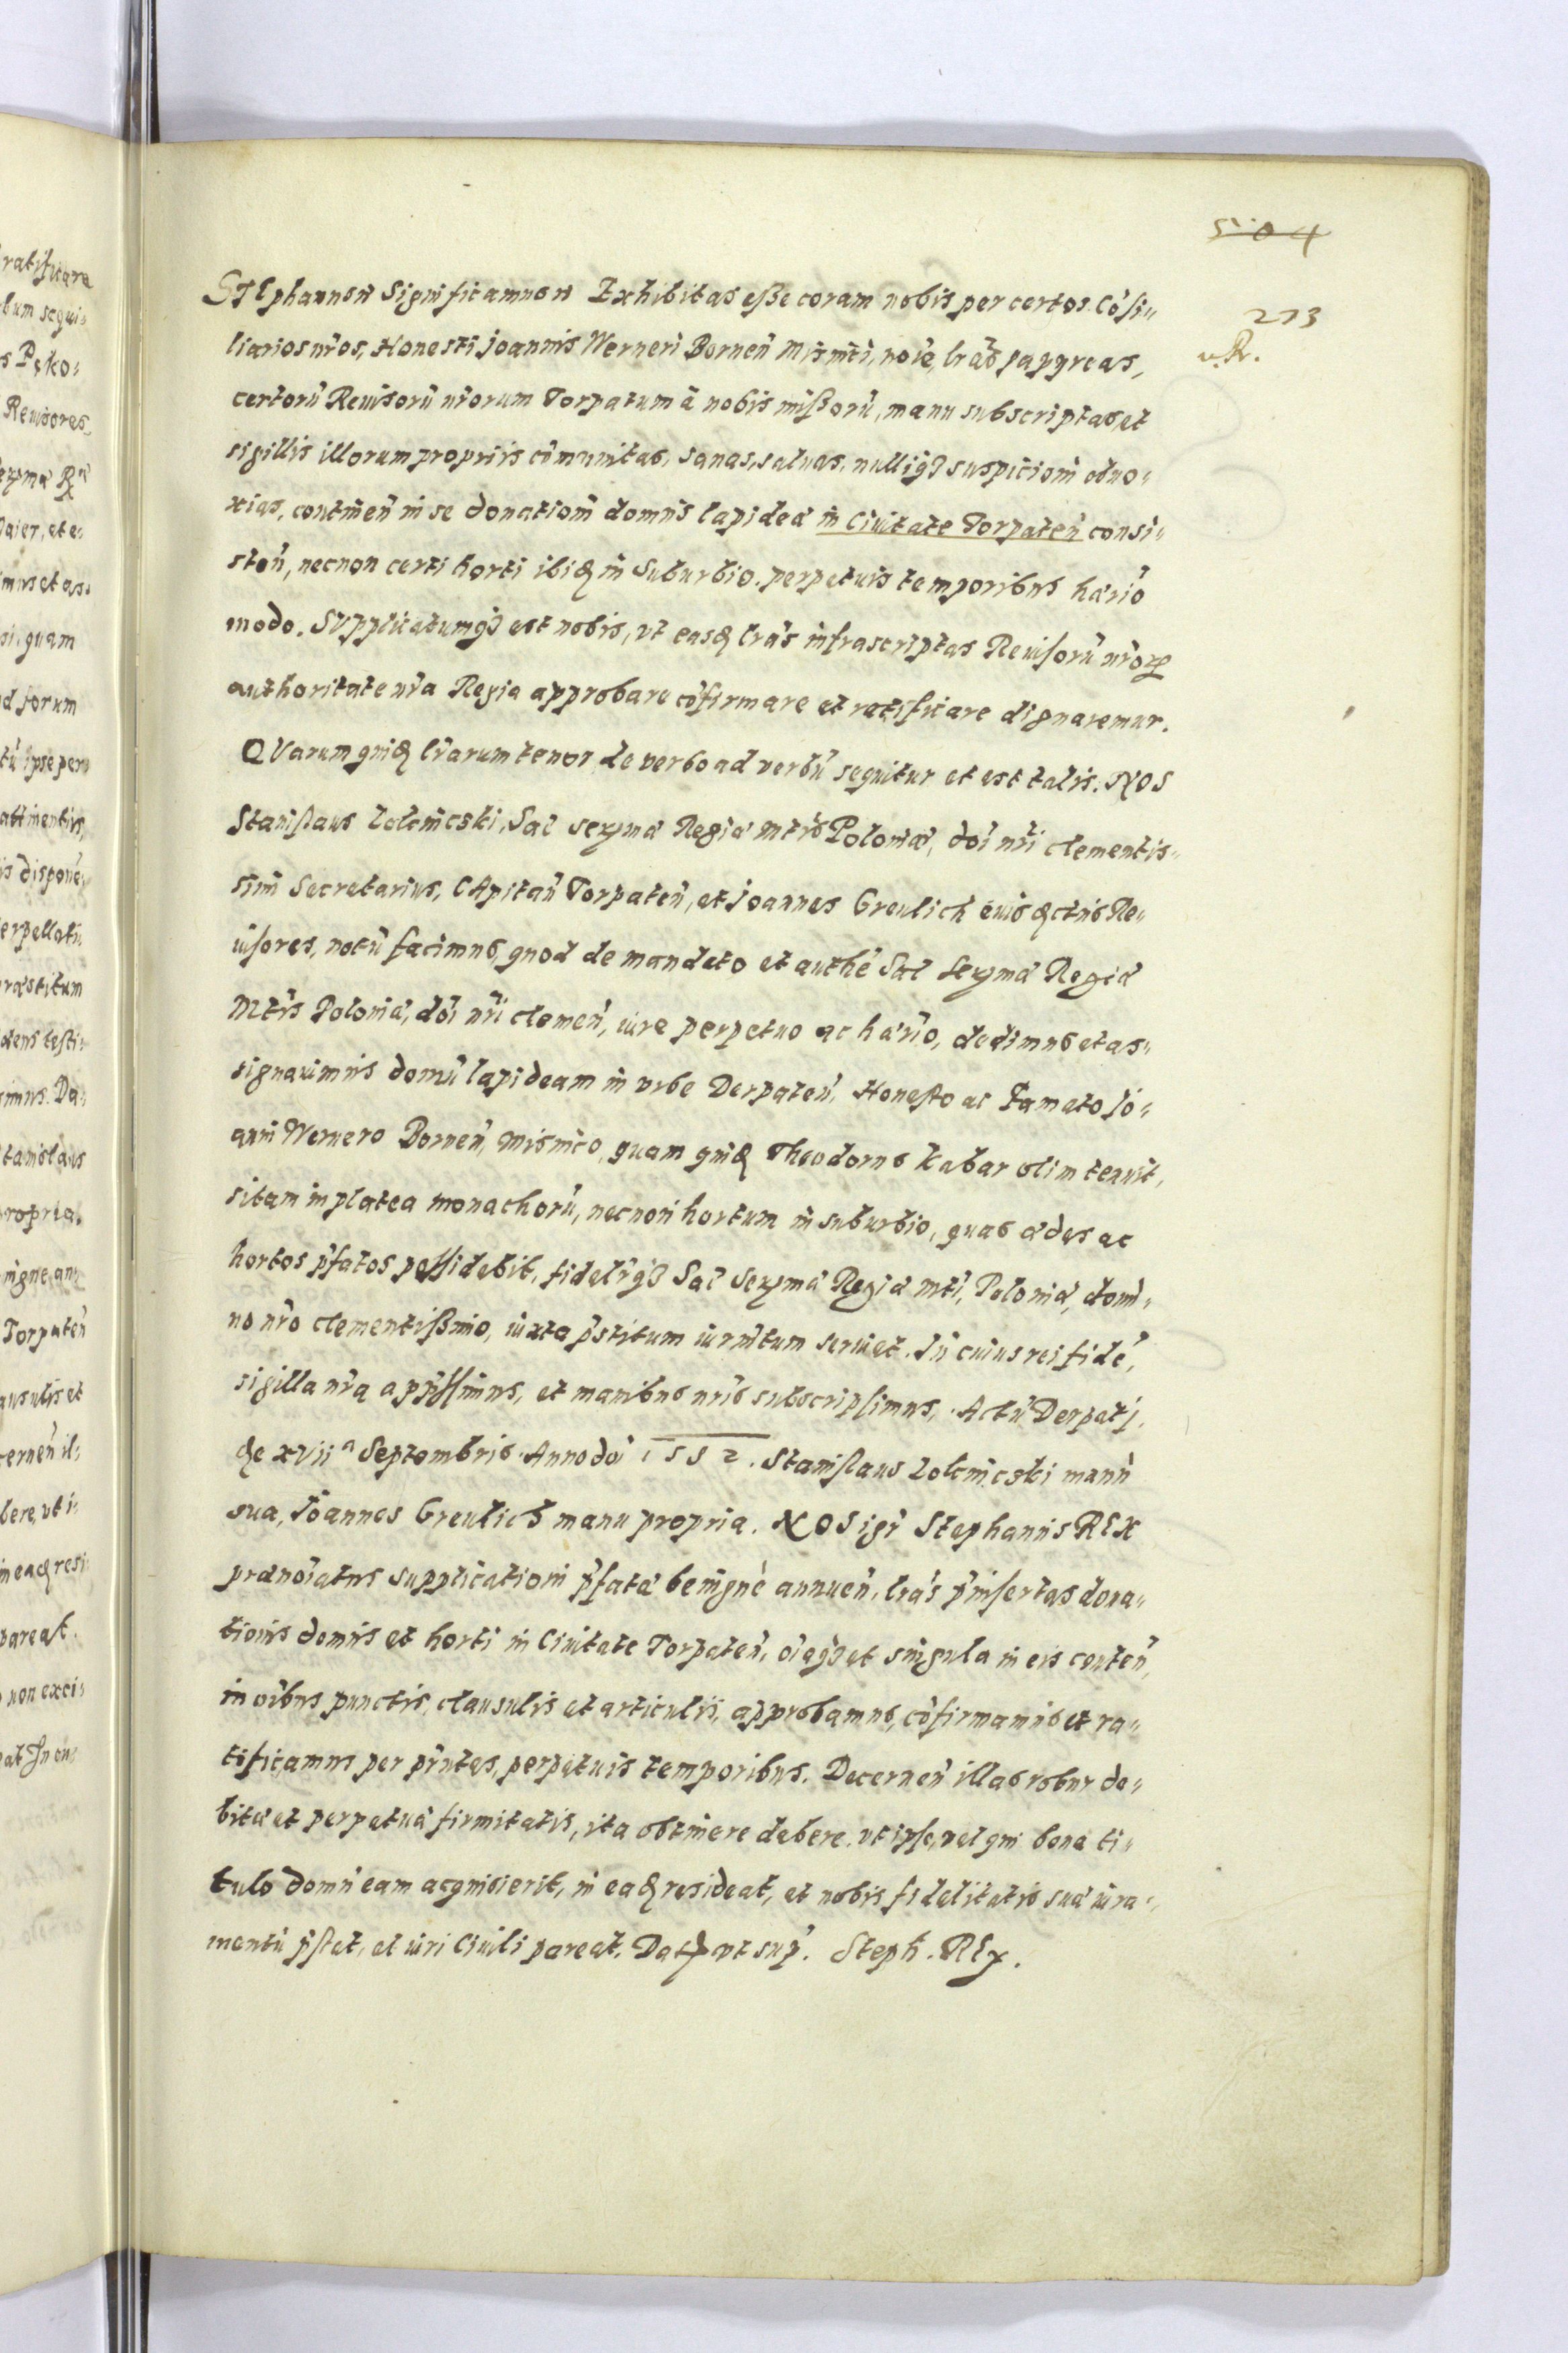 504
273
v. R.
STEphannsn Significamusn Exhibitas eße coram nobis per certos Cõsi„
liarios nr̃os, Honesti Joannis Werneri Bornen̄ noīe, lrãs papyreas,
certorū Reuisorū nr̃orum Torpatum à nobis mißorū, manu subscriptas, et
sigillis illorum propriis cōmunitas, sanas, saluas, nulliq3 suspicioni obno„
xias, continen̄ in se donationē domus lapideæ in Ciuitate Torpaten̄ consi„
sten̄, necnon certi horti ibidē in suburbio. perpetuis temporibus hærio
modo. SVpplicatumq3 est nobis, vt easdē lrãs infrascriptas Reuisorū nr̃orꝝ
authoritate nr̃a Regia approbare cōfirmare et ratificare dignaremur.
QVarum quidē lr̃arum tenor de verbo ad verbū sequitur et est talis. NOS
Stanislaus Zolcineski, Sac̃ serꝫmæ Regiæ Mtis Poloniæ, doī nr̃i clementis„
simi Secretarius, CApitan̄ Torpaten̄, et Joannes Greulich eius Re„
uisores, notū facimus, quod de mandato et authē Sac̃ Serꝫmæ Regiæ
Mtis Poloniæ, doī nr̃i clemen̄, iure perpetuo ac hærio, dedimus et as„
signauimus domū lapideam in vrbe Derpaten̄. Honesto ac Famato Jo„
anni Wernero Bornen̄ Misnico, quam quidē Theodorus Kabar olim tenuit,
sitam in platea monachorū, necnon hortum in suburbio, quas ædes ac
hortos p̄fatos possidebit, fideliq3 Sac̃ Serꝫmæ Regiæ Mti, Poloniæ, domi„
no nr̃o clementißimo, iuxta p̄stitum iurmtum seruiet. In cuius rei fidē,
sigilla nr̃a appressimus, et manibus nr̃is subscripsimus. Actū Derpati,
die xviiª Septembris Anno dō 1552. Stanislaus Zolcineski manu
sua, Joannes Greulich manu propria. NOS igr̃ Stephanus REX
prænoīatus supplicationi p̄fatæ benignè annuen̄, lrãs p̄insertas dona„
tionis domus et horti in Ciuitate Torpaten̄, oīaq3 et singula in eis conten̄,
in oībus punctis, clausulis et articulis, approbamus, cōfirmamus et ra„
tificamus per p̄ntes, perpetuis temporibus. Decernen̄ illas robur de„
bitæ et perpetuæ firmitatis, ita obtinere debere, vt ipse, vel qui bono ti„
tulo domū eam acquisierit, in eadē resideat, et nobis fidelitatis suæ iura„
mentū p̄stet, et iuri Ciuili pareat. Dat̃ vt sup̃. Steph. REx.